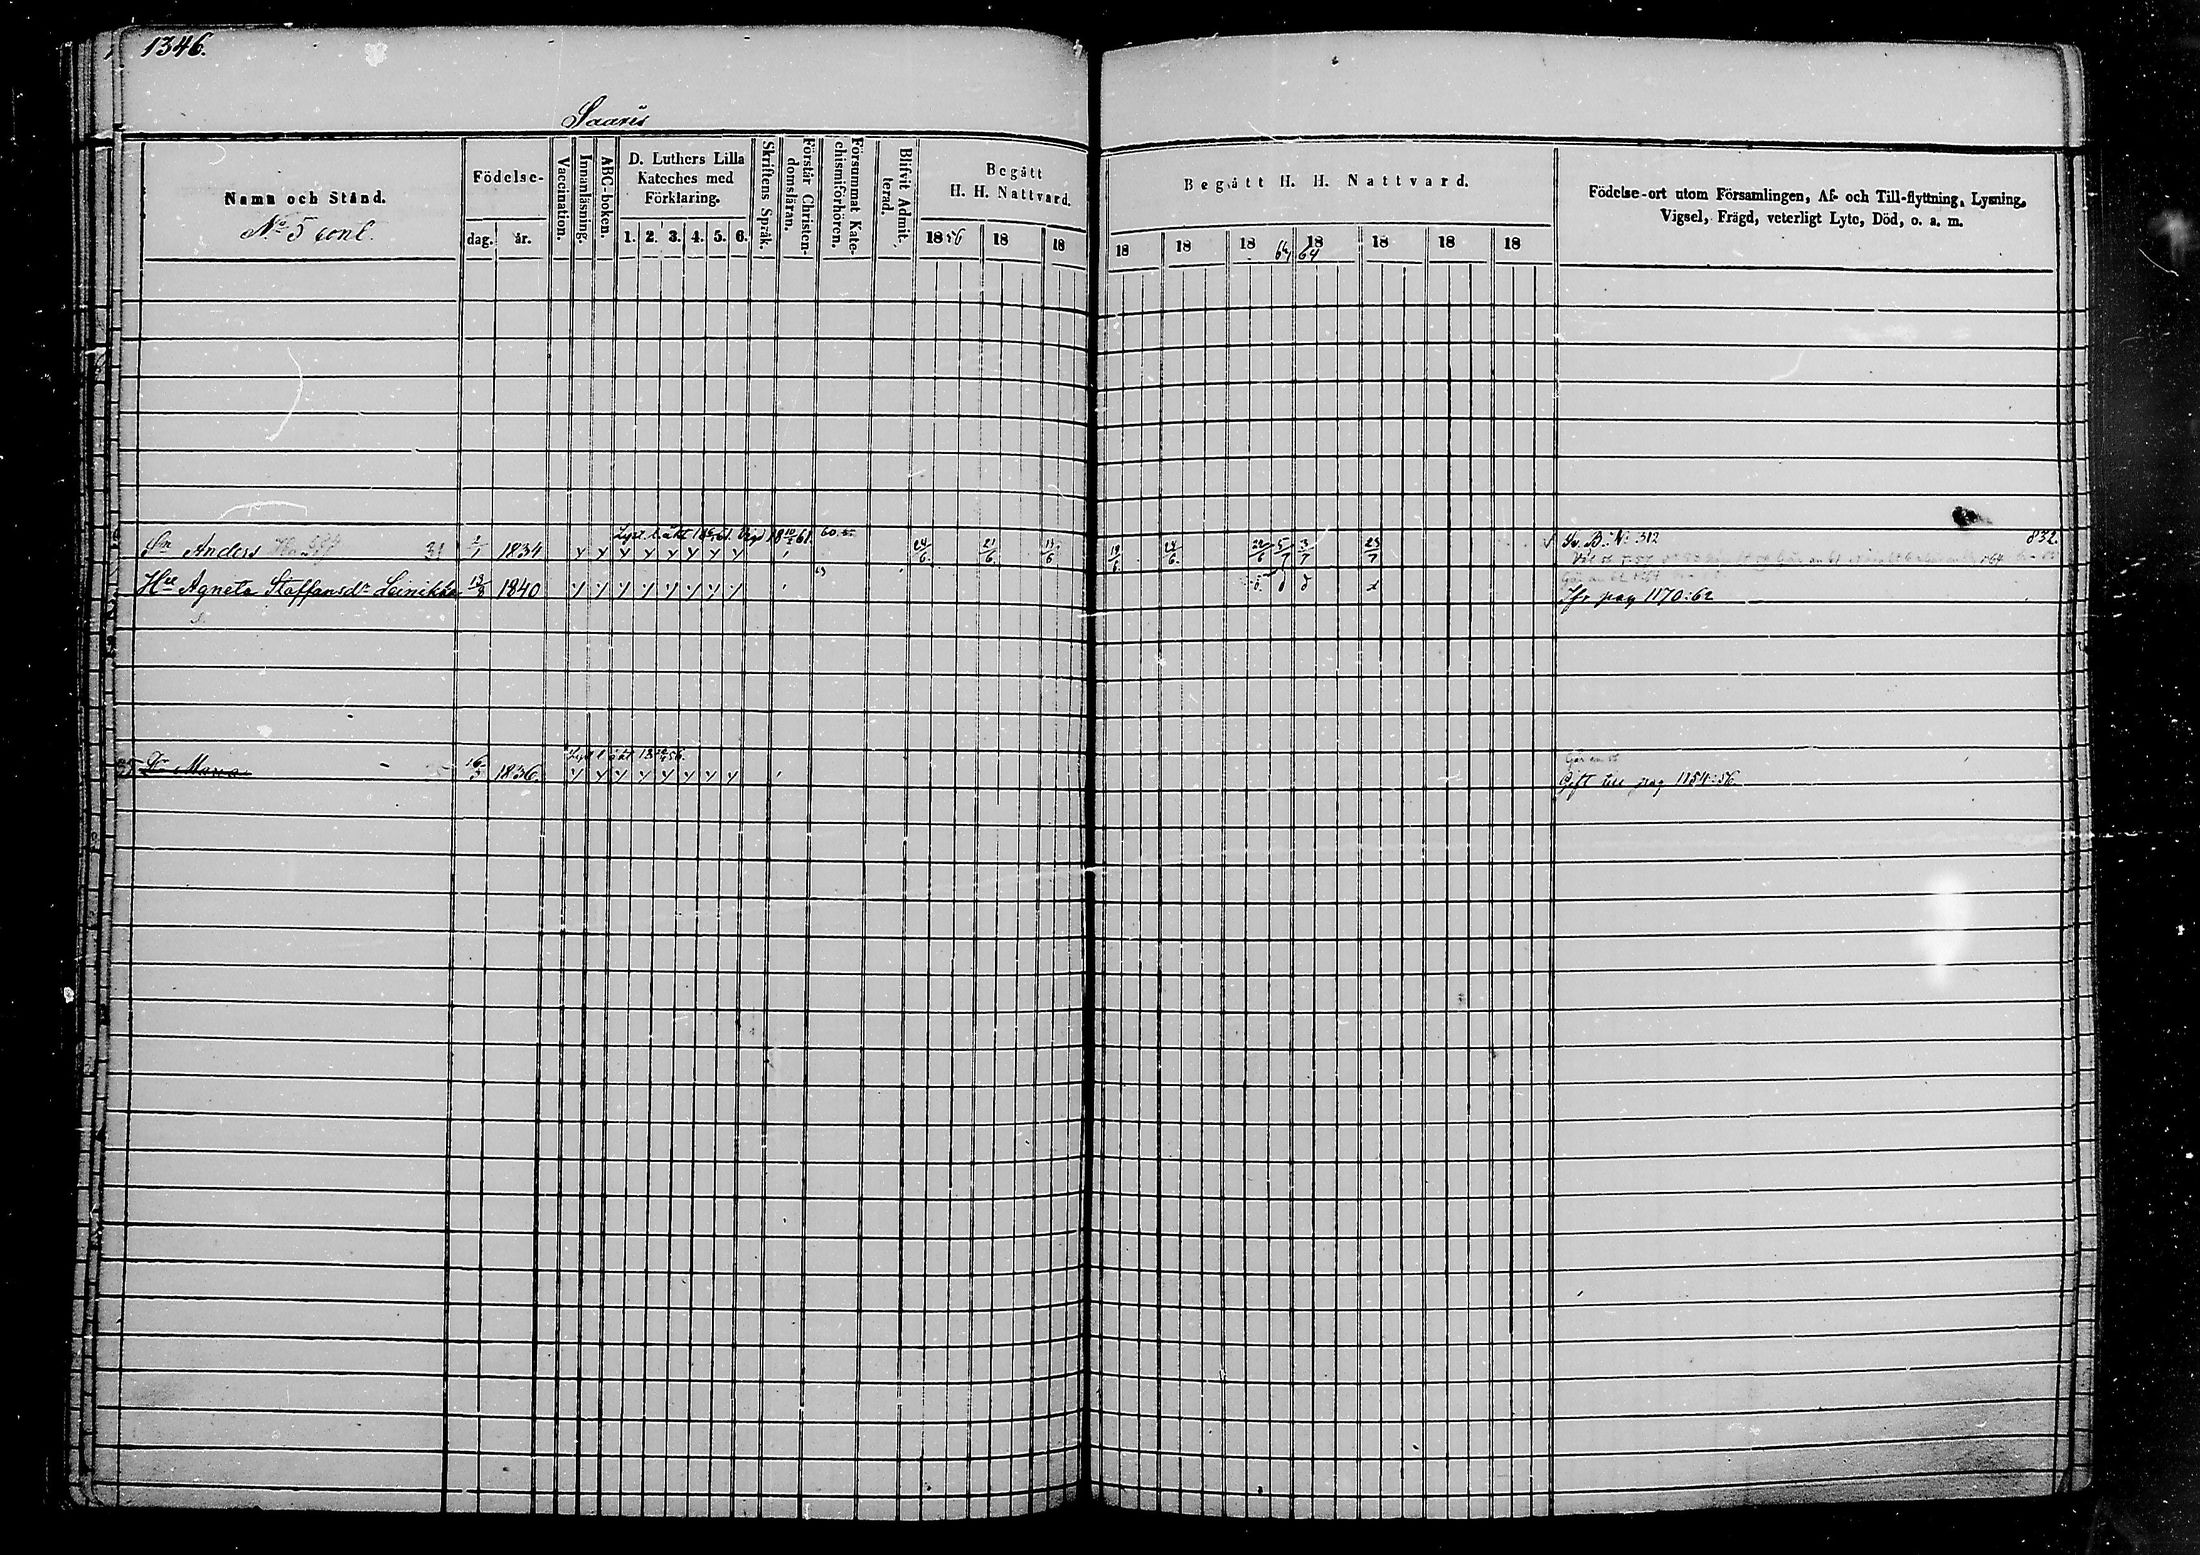 1346.
Saaris
Namn och Stånd.
No 5 cont.
Födelse-
dag. år.
Vaccination.
Innanläsning.
ABC-boken.
D. Luthers Lilla
Kateches med
Förklaring.
1. 2. 3. 4. 5. 6.
Skriftens Språk.
Förstår Christen-
domsläran.
Försummat Kate-
chismiförhören.
Blifvit Admit-
terad.
Begått
H. H. Nattvard.
1856 18 18
Begått H. H. Nattvard.
18 18 18 64 18 64 18 18 18
Födelse-ort utom Församlingen, Af- och Till-flyttning, Lysning,
Vigsel, Frägd, veterligt Lyte, Död, o. a. m.
Sn Anders 31 1834 24/6 21/6 19/6 24/6 5/7 3/7 23/7 Sv. B. N: 312 832
Hu Agneta Staffansdr Leinikka 1840 Jfr pag 1170:62
Dr Maria 1836. Gift till pag 1154:56